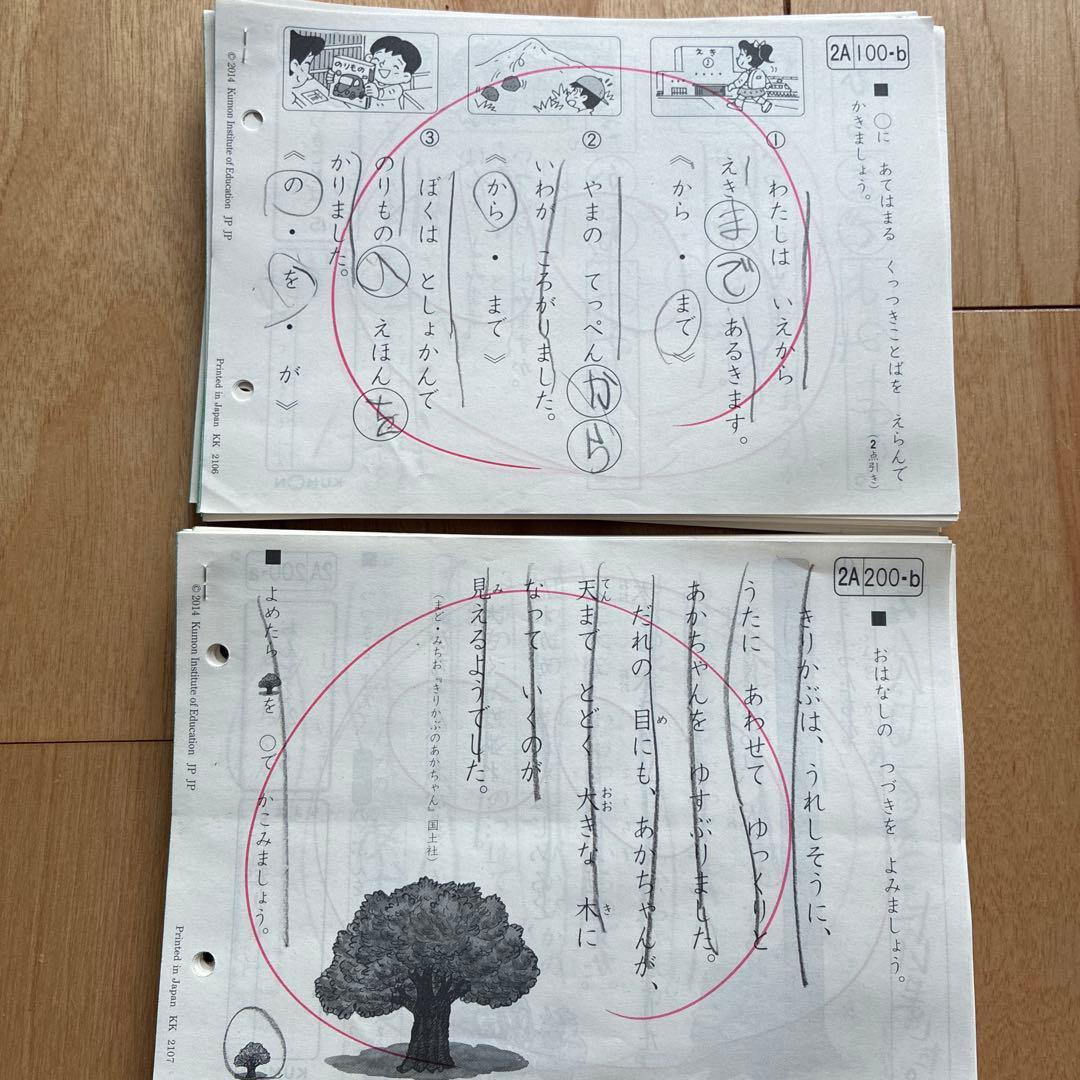 2A 100-b
■ ○に あてはまる くっつきことばを えらんで
かきましょう。
(2点引き)
えき
①
わたしは いえから
えきまで あるきます。
《から・まで》
②
やまの てっぺんから
いわが ころがりました。
《から・まで》
③
ぼくは としょかんで
のりものの えほんを
かりました。
《の・を・が》
のりもの
© 2014 Kumon Institute of Education JP JP
Printed in Japan KK 2106
2A 200-b
■ おはなしの つづきを よみましょう。
きりかぶは、うれしそうに、
うたに あわせて ゆっくりと
あかちゃんを ゆすぶりました。
だれの 目にも、あかちゃんが、
め
天まで とどく 大きな 木に
てん おお き
なって いくのが
見えるようでした。
み
(まど・みちお『きりかぶのあかちゃん』国土社)
■ よめたら を ○で かこみましょう。
© 2014 Kumon Institute of Education JP JP
Printed in Japan KK 2107